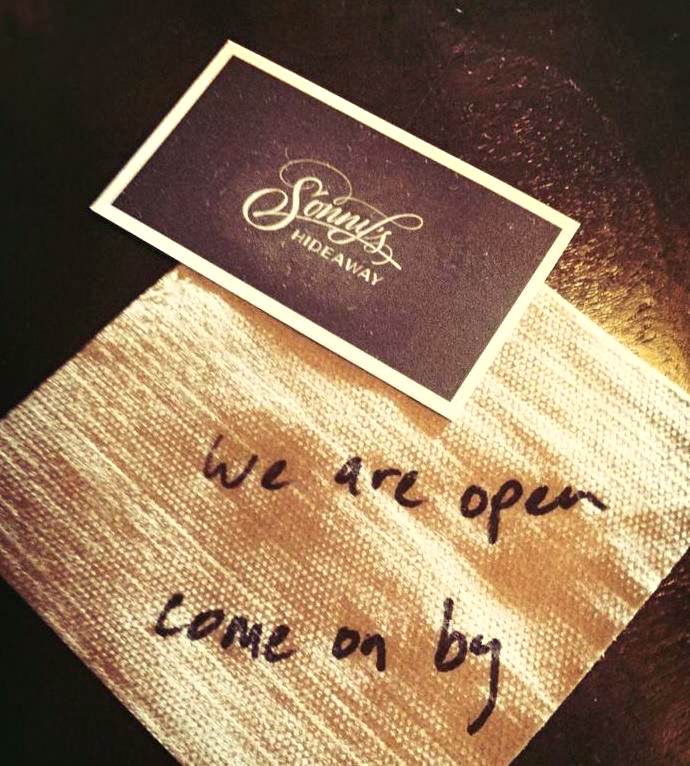 Sonny's
HIDEAWAY
We are open
come on by